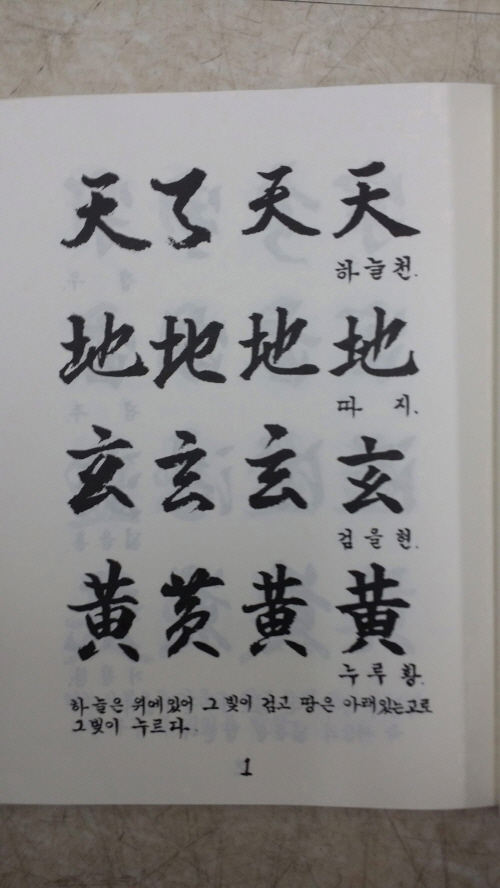 天 天 天 天
하늘천.
地 地 地 地
따 지.
玄 玄 玄 玄
검을현.
黃 黃 黃 黃
누루황.
하늘은 위에있어 그빛이 검고 땅은 아래있는고로
그빛이 누르다.
1